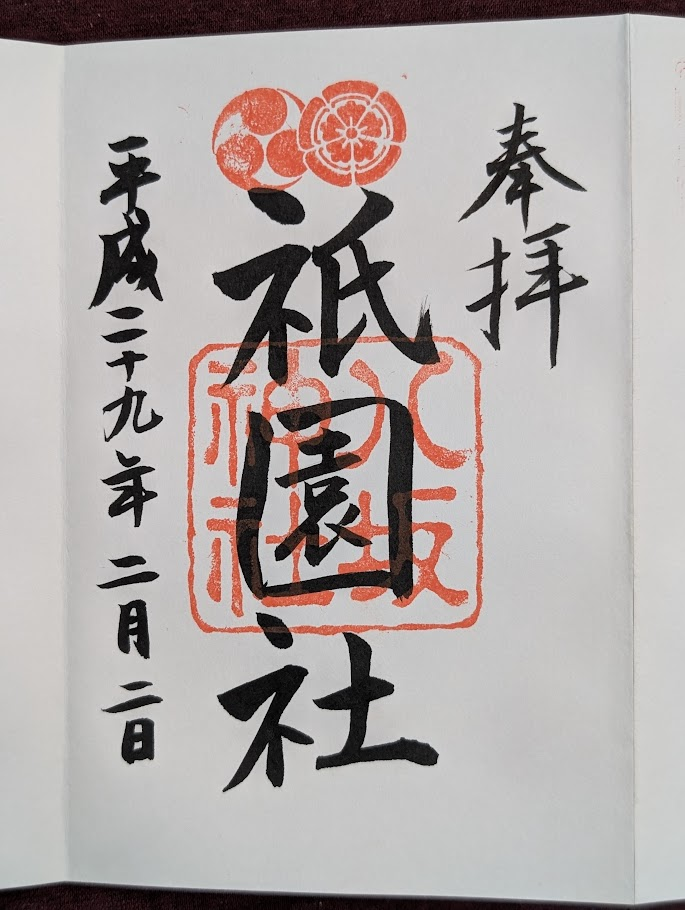 奉拝
祇園社
八坂
神社
平成二十九年二月二日